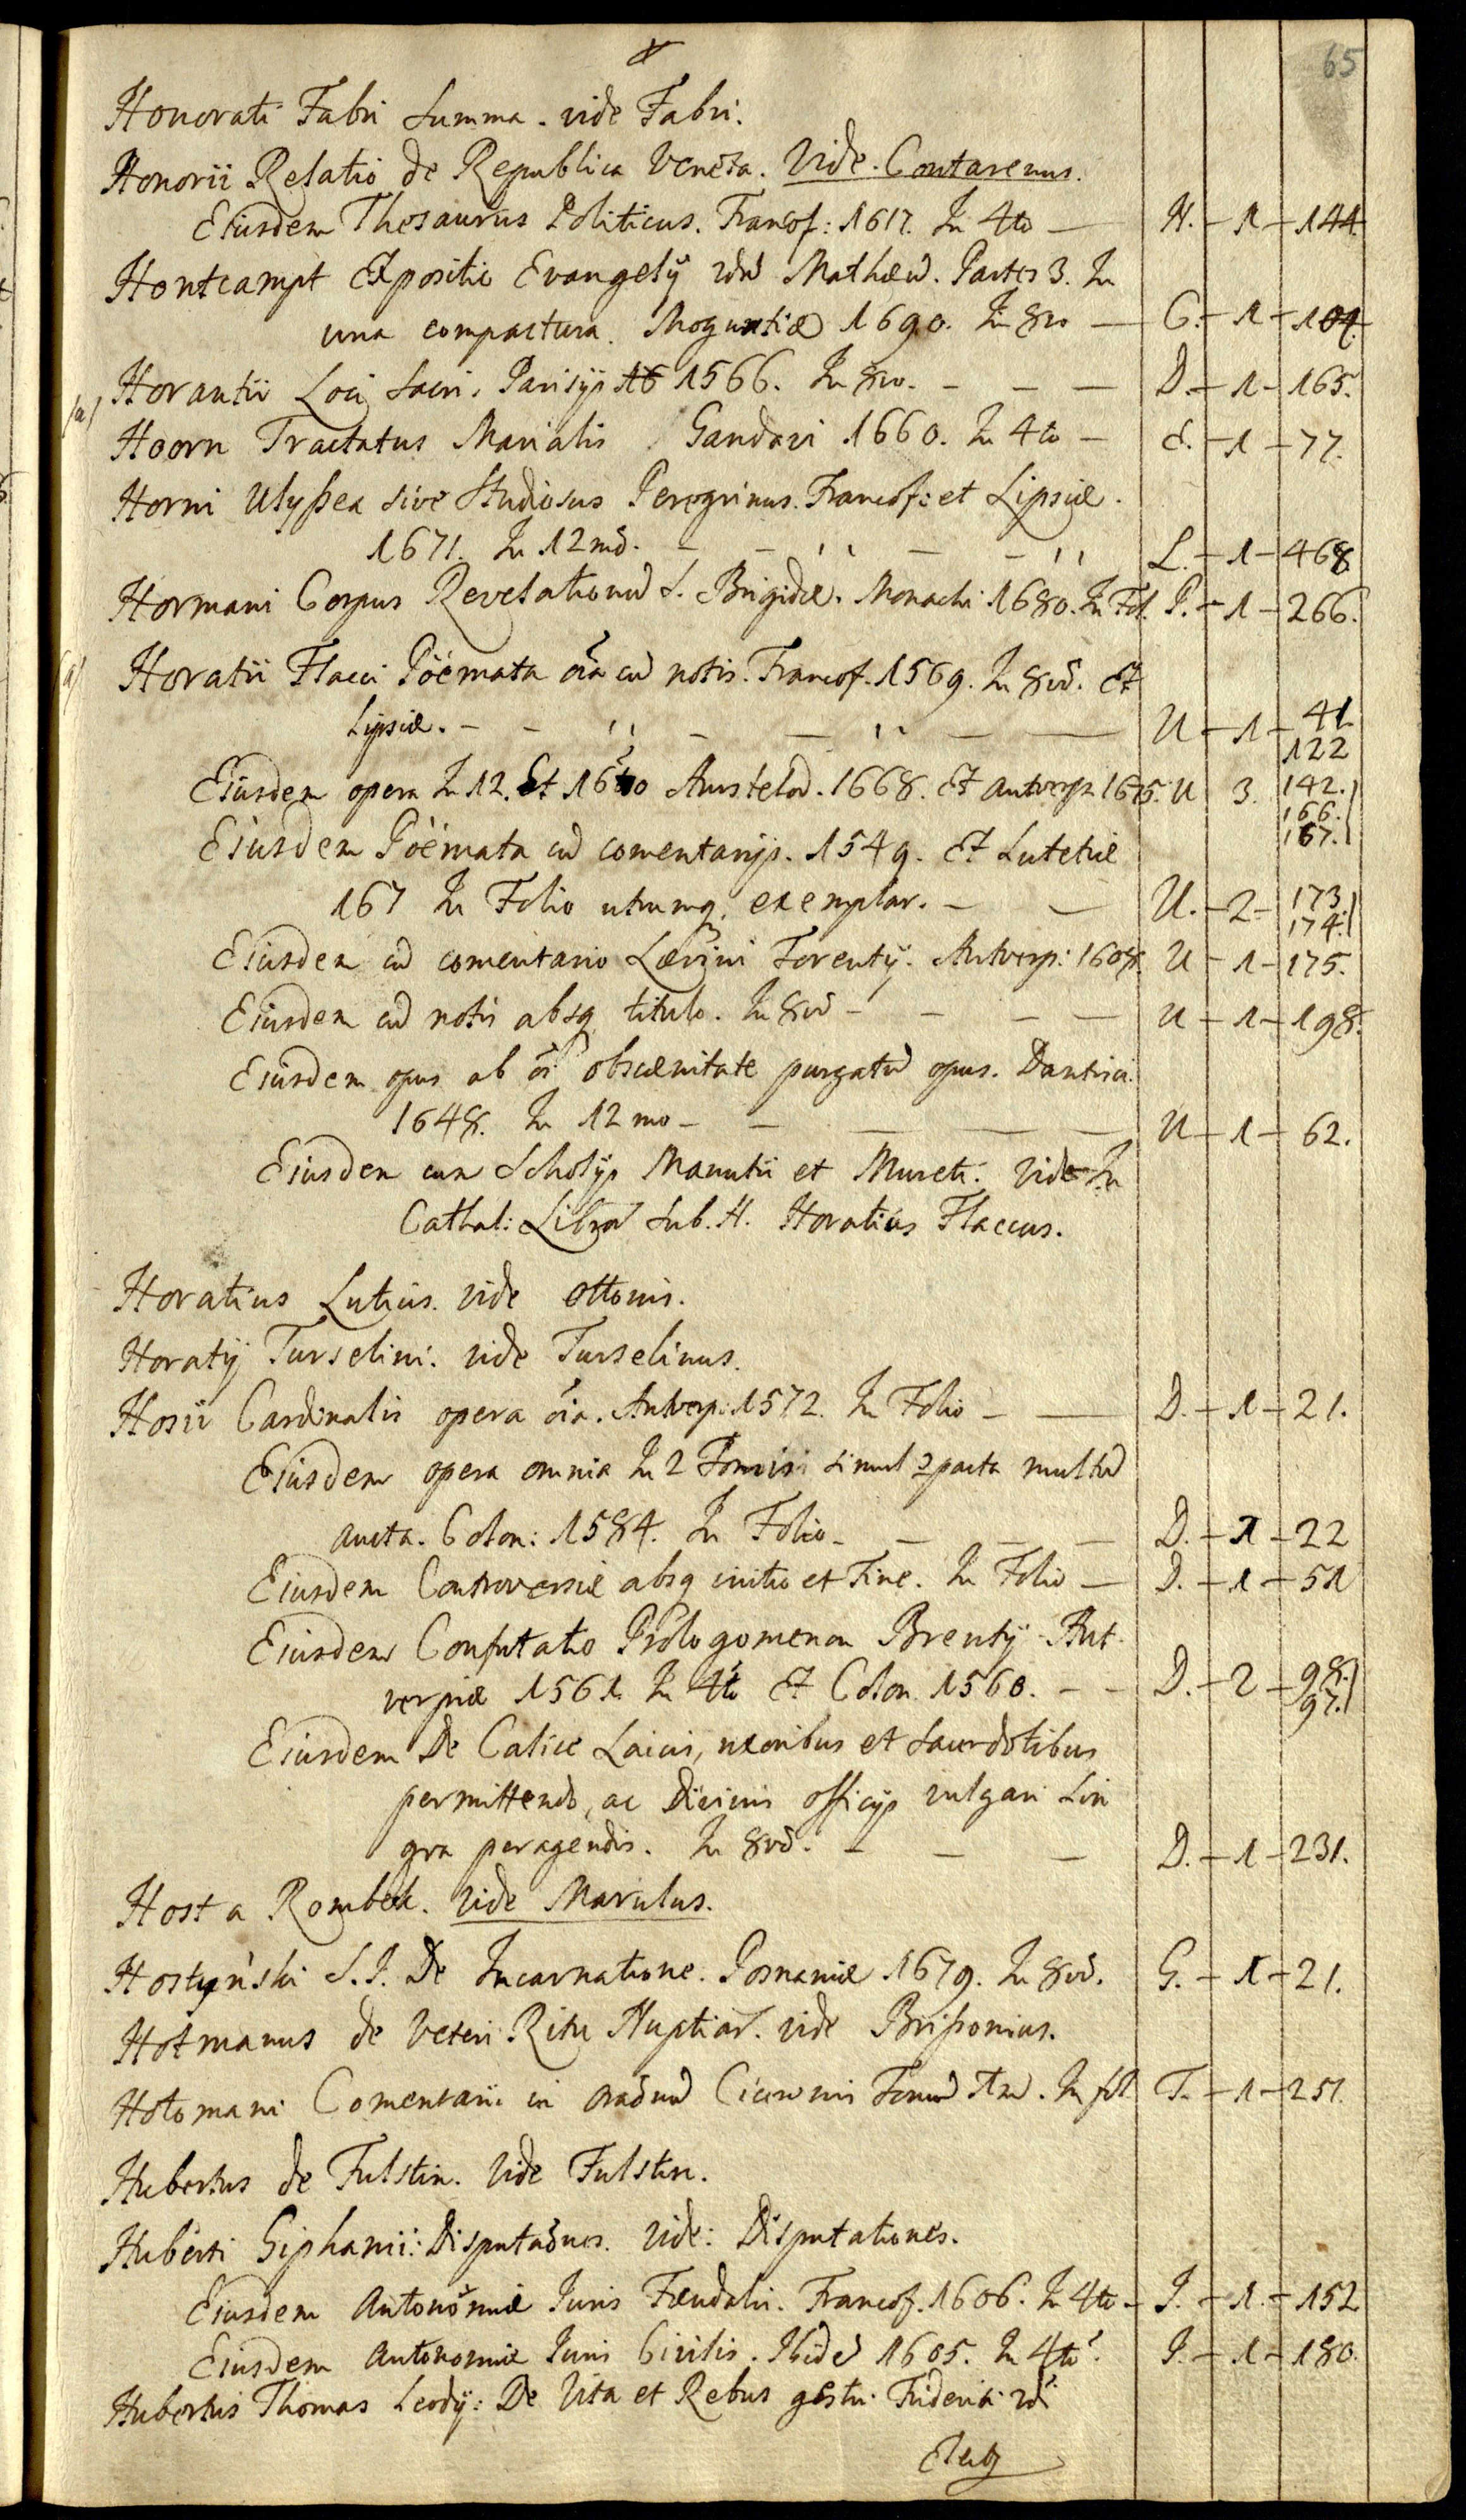 65
Honorati Fabri Summa. vide Fabri.
Honorii Relatio de Republica Veneta. Vide. Contarenus.
Eiusdem Thesaurus Politicus. Francof: 1617. In 4to — H. - 1 - 144.
Hontcampt Expositio Evangelÿ Mathæū. Partes 3. In
una compactura. Moguntiæ 1690. In 8vo — C. - 1 - 104.
Horantii Loci Sacri. Parisÿs 1566. In 8vo. - - — D. - 1 - 165.
(a)
Hoorn Tractatus Marialis Gandavi 1660. In 4to — E. - 1 - 77.
Horni Ulyssea sive Studiosus Peregrinus. Francof: et Lipsiæ.
1671. In 12mō. - - - - L. - 1 - 468
Hormani Corpus Revelationū S. Brigidæ. Monachi 1680. In Fol. P. - 1 - 266.
(a)
Horatii Flacci Poëmata oīa cū notis. Francof. 1569. In 8vō. Et
Lipsiæ. - - - - — U - 1 - 41
122
Eiusdem opera In 12. Et 16to Amstelod. 1668. Et Antverp: 1675. U 3. 142.
166.
167.
Eiusdem Poëmata cū comentarÿs. 1549. Et Lutetiæ
167 In Folio utrumq. exemplar. - — U. - 2 - 173.
174.
Eiusdem cū comentario Lævini Torentÿ. Antverp: 1608. U - 1 - 175.
Eiusdem cū notis absq titulo. In 8vō - - - — U - 1 - 198.
Eiusdem opus ab oī obscænitate purgatū opus. Dantisci.
1648. In 12mo - - — — — U - 1 - 62.
Eiusdem cum Scholÿs Manutii et Mureti. Vide In
Cathal: Libror Sub. H. Horatius Flaccus.
Horatius Lutius. vide Ottonis.
Horatÿ Turselini. vide Turselinus.
Hosii Cardinalis opera oīa. Antverp: 1572. In Folio - — D. - 1 - 21.
Eiusdem opera omnia In 2 Tomis simul 2pacta multū
aucta. Colon: 1584. In Folio - — - — D. - 1 - 22
Eiusdem Controversiæ absq initio et Fine. In Folio — D. - 1 - 51
Eiusdem Confutatio Prologomenon Brentÿ Ant
verpiæ 1561. In 4to Et Colon 1560. - - D. - 2 - 98.
97.
Eiusdem De Calice Laicis, uxoribus et Sacerdotibus
permittendo, ac Divinis officÿs vulgari Lin
gva peragendis. In 8vō. - — — D. - 1 - 231.
Host a Rombek. vide Marulus.
Hostyński S. J. De Incarnatione. Posnaniæ 1679. In 8vō. G. - 1 - 21.
Hotmanus de Veteri Ritu Nuptiar. vide Brissonius.
Hotomani Comentarii in Ciceronis Tomū In fol T. - 1 - 251.
Hubertus de Fulstin. Vide Fulstin.
Huberti Giphanii: Disputaōnes. Vide: Disputationes.
Eiusdem Antonomiæ Juris Fæudalis. Francof. 1606. In 4to - J. - 1. - 152
Eiusdem Antonomiæ Juris Civilis. Ibidē 1605. In 4to. J. - 1 - 180.
Hubertus Thomas Leodÿ: De Vita et Rebus gestis Friderici 2di